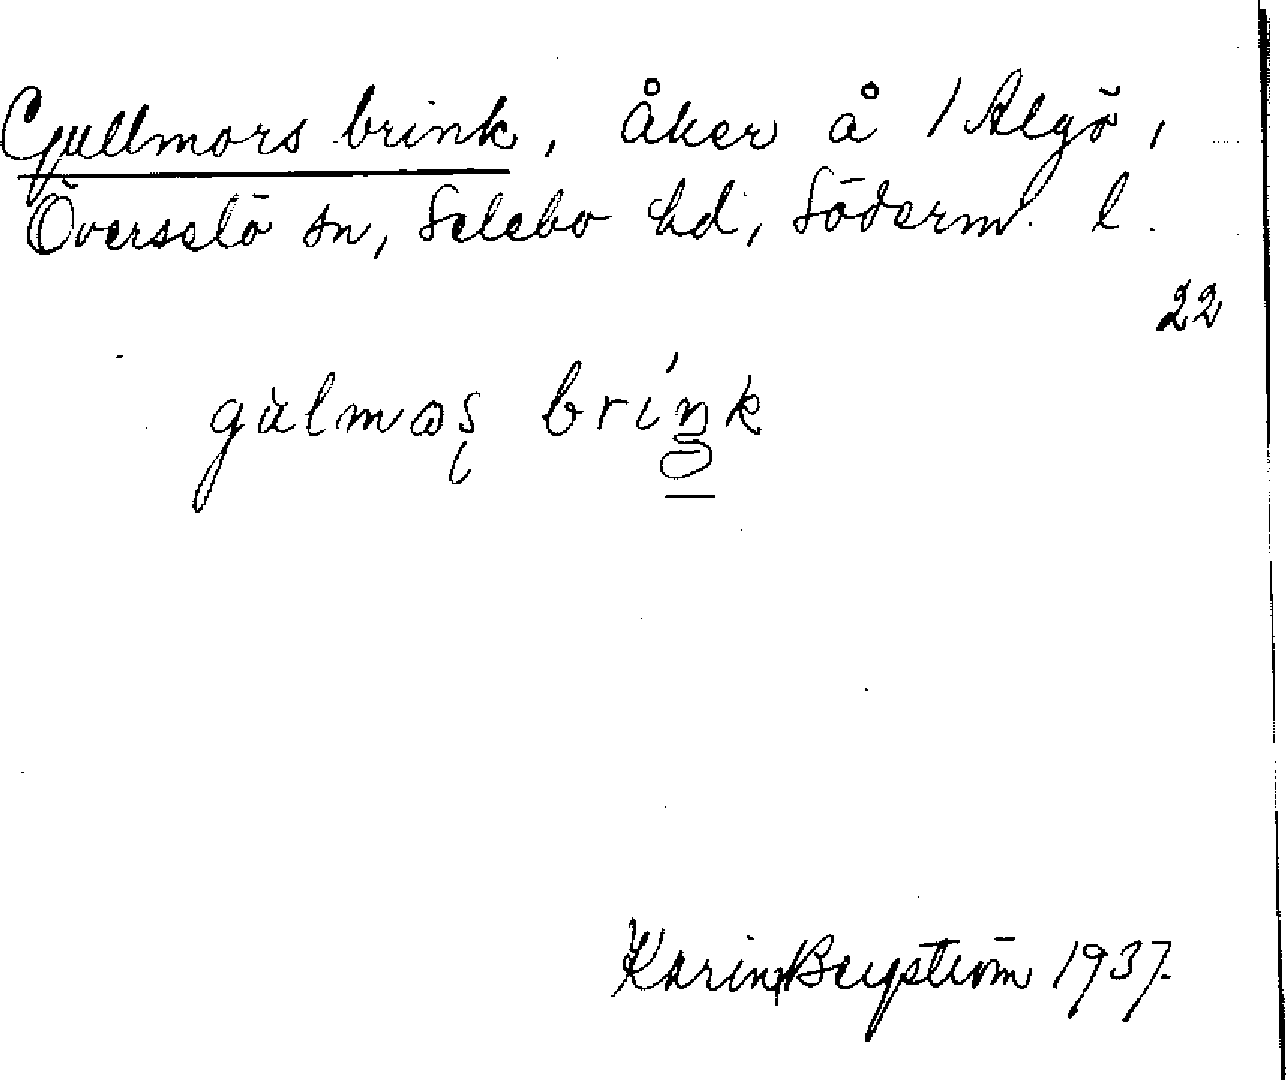 Gullmors brink, åker å 1 Algö,
Överselö sn, Selebo hd, Söderm. l.
22
gùlmɷș bríŋk
Karin Bergström 1937.